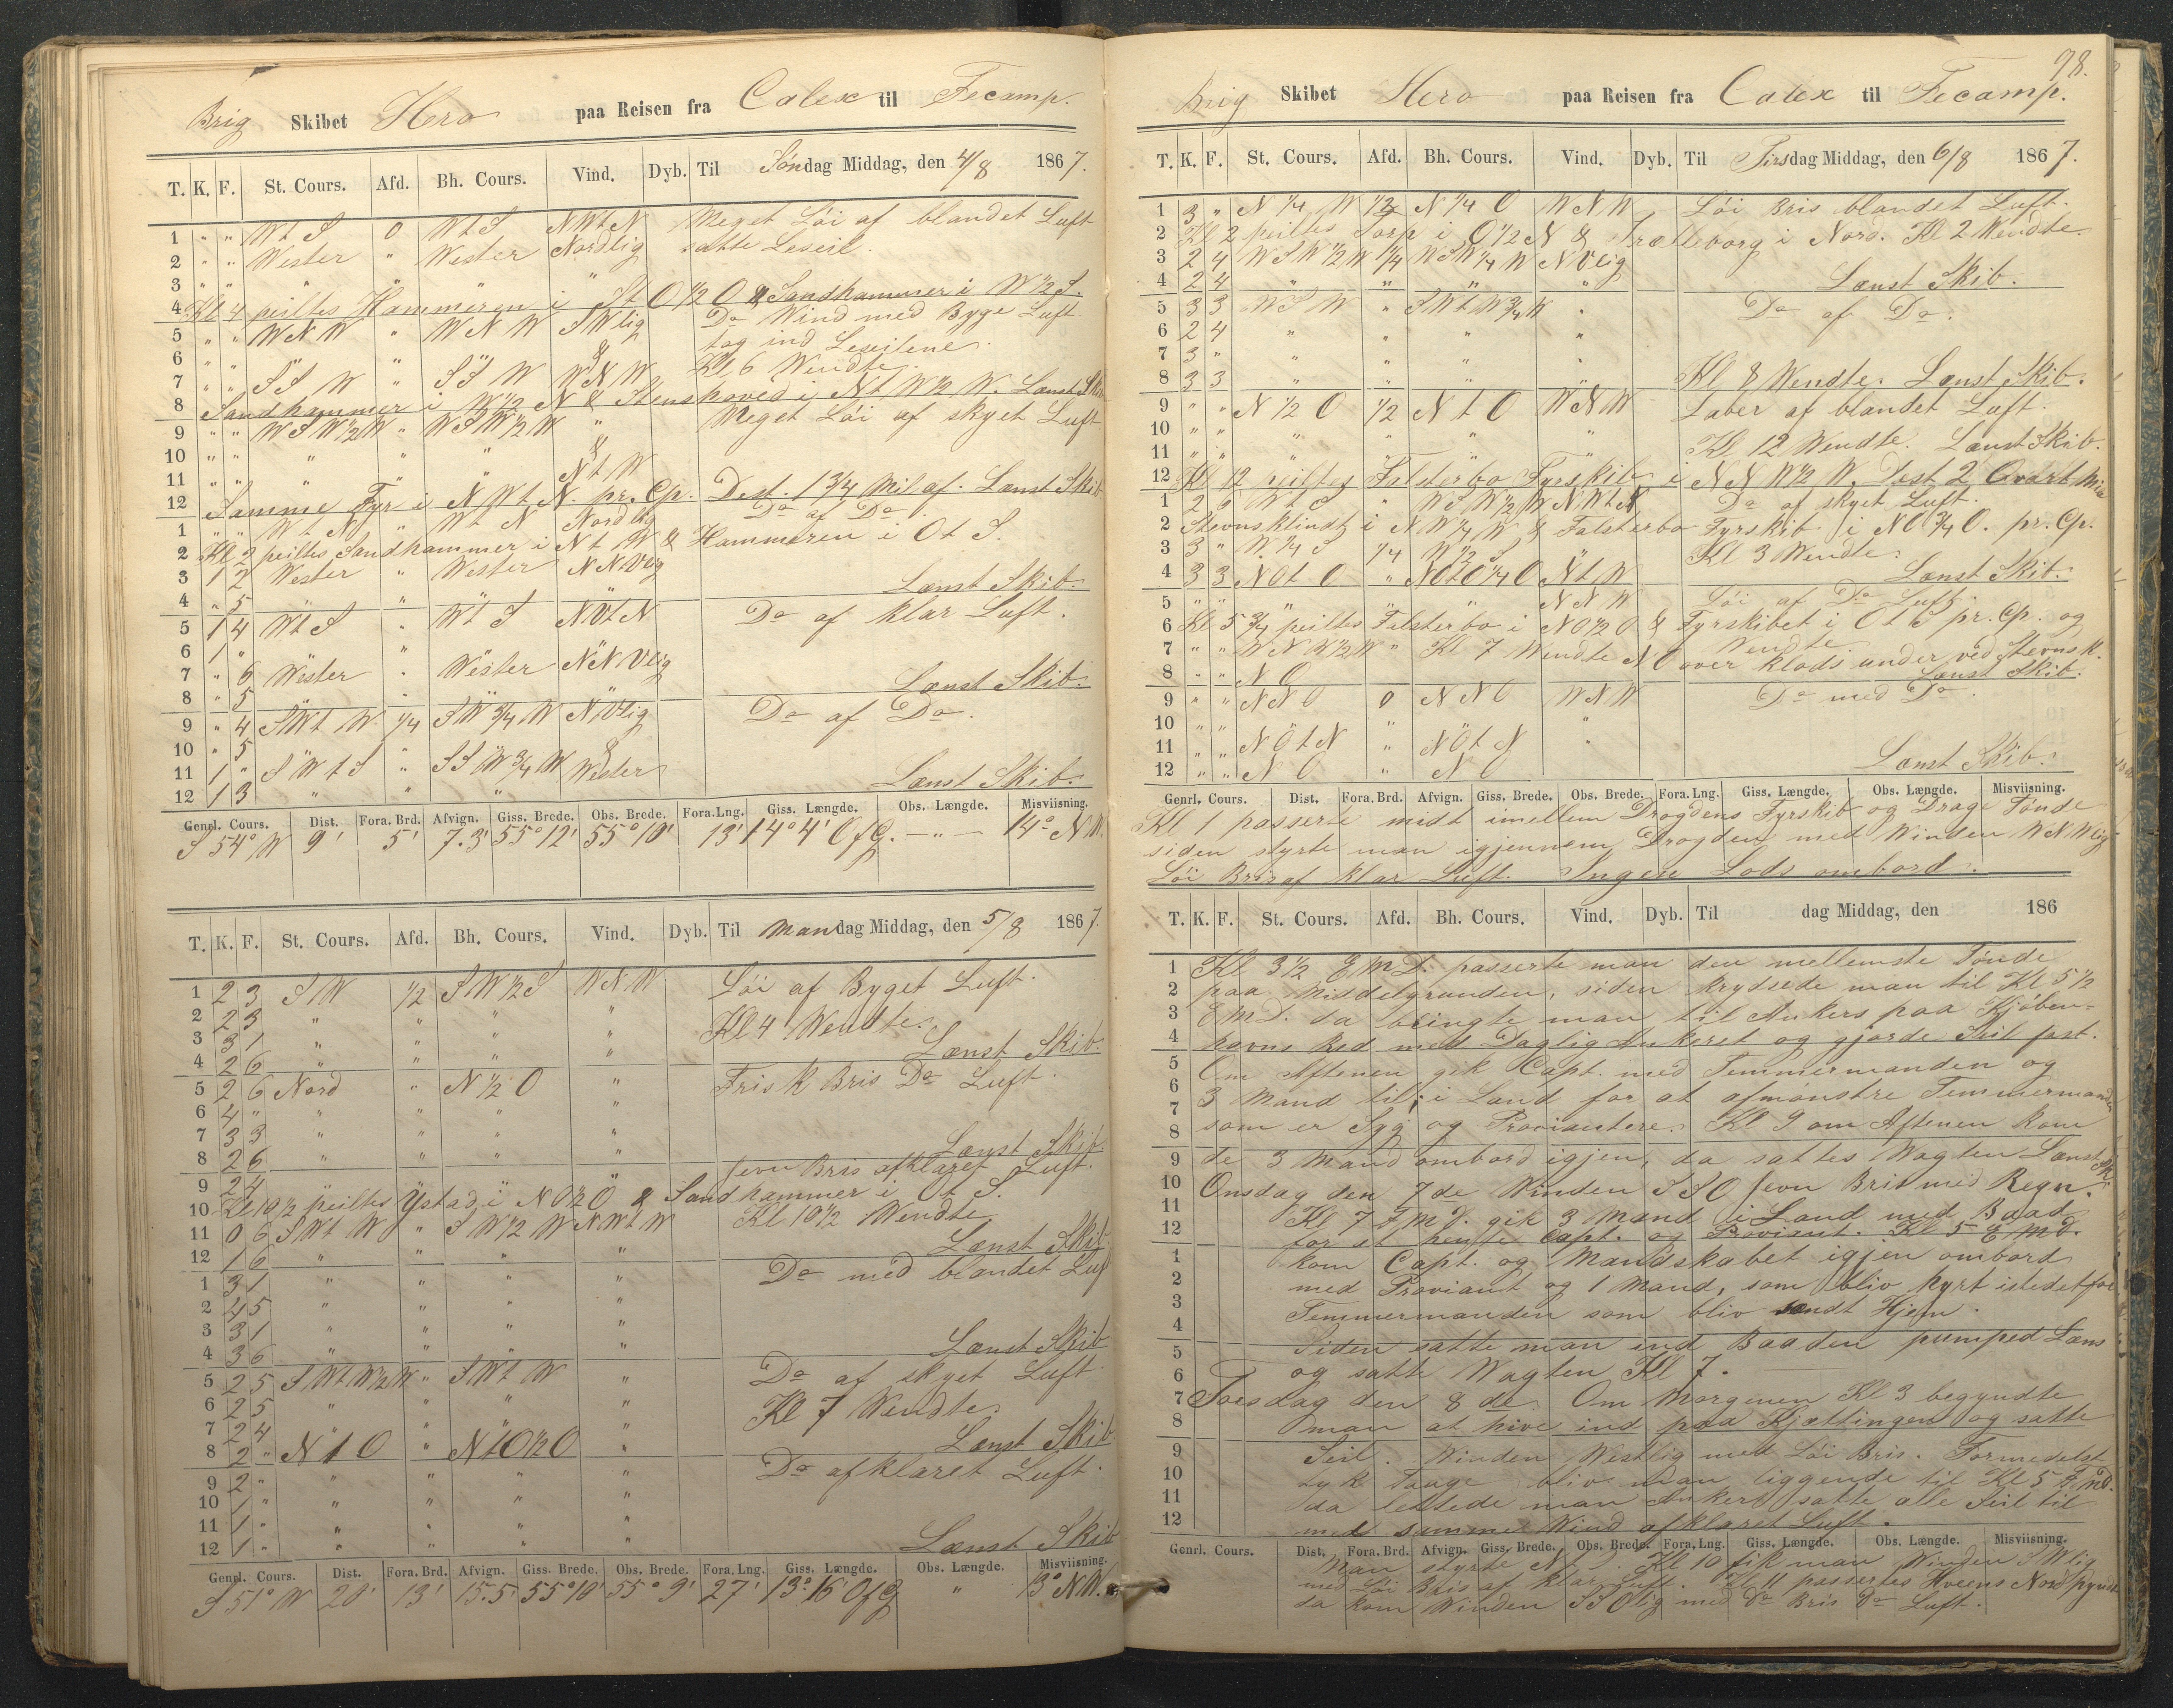 Brig Skibet Hero paa Reisen fra Calex til Fecamp.
T. K. F. St. Cours. Afd. Bh. Cours. Vind. Dyb. Til Søndag Middag, den 4/8 1867.
1 " " WtS 0 WtS NWtN Meget Löi af blandet Luft
2 " " Wester " Wester Nordlig satte Leseil.
3 " " " " " "
4 Kl 4 peiltes Hammeren i StO 1/2 O & Sandhammer i W 1/2 S.
5 " " WNW " WNW SWlig Do Wind med Byge Luft
6 " " & tog ind Leseilene.
7 " " SSW " SSW WNW Kl 6 Wendte.
8 Sandhammer i W 1/2 N & Stenshoved i NtW 1/2 W. Lænst Skib
9 " " WSW 1/2 W " WSW 1/2 W " Meget Löi af skyet Luft.
10 " " " " " &
11 " " " " " NtW
12 Samme Fyr i NWtN. pr. Cp. Dest. 1 3/4 Mil af. Lænst Skib
1 " " WtN " WtN Nordlig Do af Do.
2 Kl 2 peiltes Sandhammer i NtW & Hammeren i OtS.
3 1 2 Wester " Wester NNVlig
4 " 5 " " " Lænst Skib.
5 1 4 WtS " WtS NVtN Do af klar Luft.
6 1 " " " "
7 " 6 Wester " Wester NNVlig
8 " 5 " Lænst Skib.
9 " 4 SWtW 1/4 SW 3/4 W NVlig Do af Do.
10 " 5 " " " &
11 1 " SWtS " SSW 3/4 W Wester
12 1 3 " " " Lænst Skib.
Genrl. Cours. Dist. Fora. Brd. Afvign. Giss. Brede. Obs. Brede. Fora. Lng. Giss. Længde. Obs. Længde. Misviisning.
S 54° W 9' 5' 7.3' 55° 12' 55° 10' 13' 14° 4' OfG. — " — 14° NW.
T. K. F. St. Cours. Afd. Bh. Cours. Vind. Dyb. Til Mandag Middag, den 5/8 1867.
1 2 3 SW 1/2 SW 1/2 S WNW Löi af Byget Luft.
2 2 3 " " " " Kl 4 Wendte.
3 3 1 " " " "
4 2 6 " " " " Lænst Skib.
5 2 6 Nord " N 1/2 O " Frisk Bris Do Luft.
6 4 " " " " "
7 3 3 " " " "
8 2 6 " " " " Lænst Skib
9 2 4 Jevn Bris afklaret Luft.
10 Kl 10 1/2 peiltes Ystad i NO 1/2 O & Sandhammer i OtS.
11 0 6 SWtW " SW 1/2 W NWtW Kl 10 1/2 Wendte
12 1 6 " " " " Lænst Skib
1 3 1 " " " " Do med blandet Luft
2 4 5 " " " "
3 3 1 " " " "
4 3 6 " " " " Lænst Skib
5 2 5 SWtW 1/2 W " SWtW " Do af skyet Luft
6 2 5 " " " "
7 2 4 " " " " Kl 7 Wendte.
8 2 " NtO " NtO 1/2 O " Lænst Skib
9 2 " " " " " Do afklaret Luft.
10 1 " " " " "
11 1 " " " " "
12 1 " " " " " Lænst Skib
Genrl. Cours. Dist. Fora. Brd. Afvign. Giss. Brede. Obs. Brede. Fora. Lng. Giss. Længde. Obs. Længde. Misviisning.
S 51° W 20' 13' 15.5' 55° 10' 55° 9' 27' 13° 16' OfG " 13° NW.
98.
Brig Skibet Hero paa Reisen fra Calex til Fecamp.
T. K. F. St. Cours. Afd. Bh. Cours. Vind. Dyb. Til Tirsdag Middag, den 6/8 1867.
1 3 " N 1/4 W 1/2 N 1/4 O WNW Löi Bris blandet Luft.
2 Kl 2 peiltes Torp i O 1/2 N & Trælleborg i Nord. Kl 2 Wendte
3 2 4 WSW 1/2 W 1/4 WSW 1/4 W NVlig
4 2 4 " " " " Lænst Skib.
5 3 3 WSW " SWtW 3/4 W " Do af Do.
6 2 4 " " " "
7 3 " " " " "
8 3 3 " " " " Kl 8 Wendte. Lænst Skib.
9 " " N 1/2 O 1/2 NtO WNW Laber af blandet Luft.
10 " "
11 " " " " " " Kl 12 Wendte. Lænst Skib.
12 Kl 12 peiltes Falsterbo Fyrskib i NNW 1/2 W. Dest 2 Qvart Mil
1 2 WtS " WSW 1/2 W NWtN Do af skyet Luft.
2 Stevnsklindt i NW 1/4 W & Falsterbo Fyrskib i NO 3/4 O. pr. Cp.
3 3 " W 1/4 S 1/4 W 1/2 S " Kl 3 Wendte.
4 3 3 NOtO " NOtO 1/4 O NtW Lænst Skib.
5 " " " " " NNW Löi af Do Luft.
6 Kl 5 3/4 peiltes Falsterbo i NO 1/2 O & Fyrskibet i OtS pr. Cp. og
7 " " WNW 1/2 W " Kl 7 Wendte NO over klods under ved Stevnsk. Wendte
8 " " NO Lænst Skib.
9 " " NNO 0 NNO WNW Do med Do.
10 " " " "
11 " " NOtN " NOtN "
12 " " NO " NO Lænst Skib.
Genrl. Cours. Dist. Fora. Brd. Afvign. Giss. Brede. Obs. Brede. Fora. Lng. Giss. Længde. Obs. Længde. Misviisning.
Kl 1 passerte midt imellem Drogdens Fyrskib og Drage Tønde
siden styrte man igjennem Drogden med Winden WNWlig
Löi Bris af klar Luft. Ingen Lods ombord.
T. K. F. St. Cours. Afd. Bh. Cours. Vind. Dyb. Til dag Middag, den 186
1 Kl 3 1/2 EMD. passerte man den mellemste Tønde
2 paa Middelgrunden, siden krydsede man til Kl 5 1/2
3 EMD. da bringte man til Ankers paa Kjöben-
4 havns Red med Daglig Ankeret og gjorde Seil fast.
5 Om Aftenen gik Capt. med Temmermanden og
6 7 3 Mand til i Land for at afmönstre Temmermanden
8 som er Syg og Proviantere. Kl 9 om Aftenen kom
9 de 3 Mand ombord igjen, da sattes Wagten Lænst Sk.
10 Onsdag den 7de Winden SSO Jevn Bris med Regn.
11 Kl 7 FMD. gik 3 Mand i Land med Baad
12 for at hente Capt. og Proviant. Kl 5 EMD.
1 kom Capt. og Mandskabet igjen ombord
2 med Proviant og 1 Mand, som bliv hyrt istedetfor
3 4 Temmermanden som bliv sendt Hjem.
5 Siden satte man ind Baaden pumped Læns
6 og satte Wagten Kl 7.
7 Torsdag den 8de. Om Morgenen Kl 3 begyndte
8 man at hive ind paa Kjættingen og satte
9 Seil. Winden Westlig med Löi Bris. Formedelst
10 tyk Taage bliv man liggende til Kl 5 FMD.
11 da lettede man Anker satte alle Seil til
12 med samme Wind afklaret Luft.
Genrl. Cours. Dist. Fora. Brd. Afvign. Giss. Brede. Obs. Brede. Fora. Lng. Giss. Længde. Obs. Længde. Misviisning.
Man styrte Kl 10 fik man Winden SWlig
med Löi Bris af klar Luft. Kl 11 passertes Hveens Nord pynt
da kom Winden SSOlig med Do Bris Do Luft.